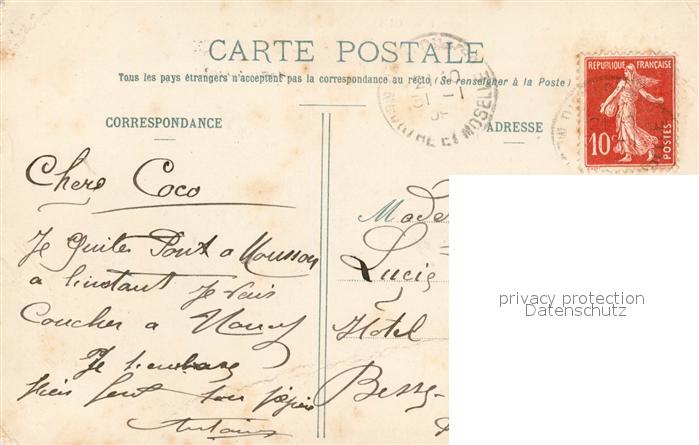 CARTE POSTALE
Tous les pays étrangers n'acceptent pas la correspondance au recto (Se renseigner à la Poste)
CORRESPONDANCE
ADRESSE
REPUBLIQUE FRANÇAISE
10c
POSTES
MEURTHE ET MOSELLE
Chere Coco
Je quite Pont a Mousson
a l'instant je vais
Coucher a Nancy
Je t'embrasse
bien fort ton
Antoine
Lucie
Hotel
privacy protection
Datenschutz